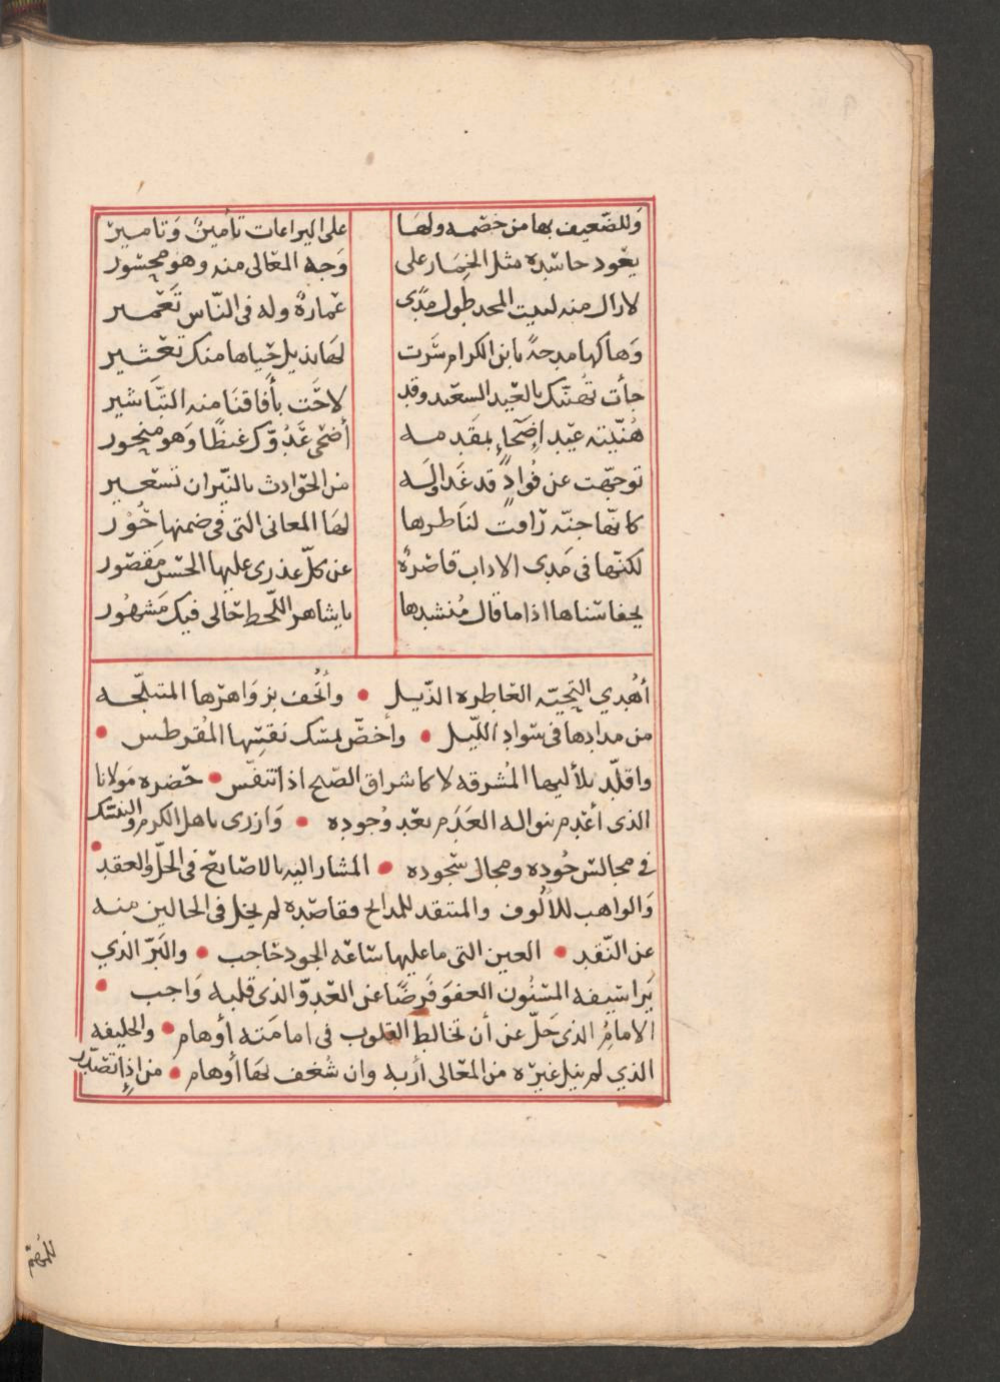 وَللضّعيف بها من خصمه ولهَا على اليراعات تأمينٌ وَتاميرّ
يعّود حاسّده مثل الخِمَار على وَجه المعّالى منه وهو محسّور
لازال منه لبيت المجد طول مدًى عّمارةٌ وله فى النّاس تَعّمير
وَهاكها مدحةً يا بن الكرام سَرت لهَا بذيل حّياها منك تعّثير
جأت تهُنّيك بالعّيد السعّيد وقد لاحَّت بأَفاقنَا منه التبَّاشير
هُنّيته عيّد اضحآءٍ بمقدمه أضحّى عَّدُوّك غيظًا وَهو منحور
توجهّت عن فُوادٍ قد غَدا وَله من الحوّادث بالنيّران تسّعير
كانهّا جنّه رّاقت لناظرها لهَا المعانى التى فى ضمنها حُّوْر
لكنّها فى مَدى الاداب قاصّرةٌ عن كلّ عذرى عليها الحسّن مَقصّور
سّناها اذا ما قال مُنشدها يا شاهر اللّحظ حّالى فيك مَشهُور
أهُدي التحيّه العّاطره الذّيل • وأتُحف بزوَاهرّها المتبلّجه
من مدادها فى سّوادِ اللّيل • وأخصّ بمسّك نقسِّها المُقرطس •
واقلّد بلأليها المُشرقه لا كاشراق الصّبح اذا تنفّس • حّضره مَولانا
الذى أعّدم بنواله العَدَم بعّد وُجودِه • وَازرى باهل الكرم والنسّك
فى مجالسّ جُوده ومجال سّجوده • المشار اليه بالاصّابع فى الحلّ والعقد •
وَالواهب للألُوف والمنتقد للمدايح فقاصّده لم يخل فى الحالين منه
عن النّقد • العين التى ما عليها سّاعّه الجود حّاجب • والبَرّ الذي
يَرا سّيفه المسّنُون العفوَ فَرضًا عن العّدوّ والذى قلبه وَاجب •
الامامُ الذى جَلّ عن أن تخالط القلوب فى امامَته أوهام • والخليفه
الذي لم ينل غيرّه من المعّالى أرَبه وان شُغف لهَا أوهام • من إذا تصّدر